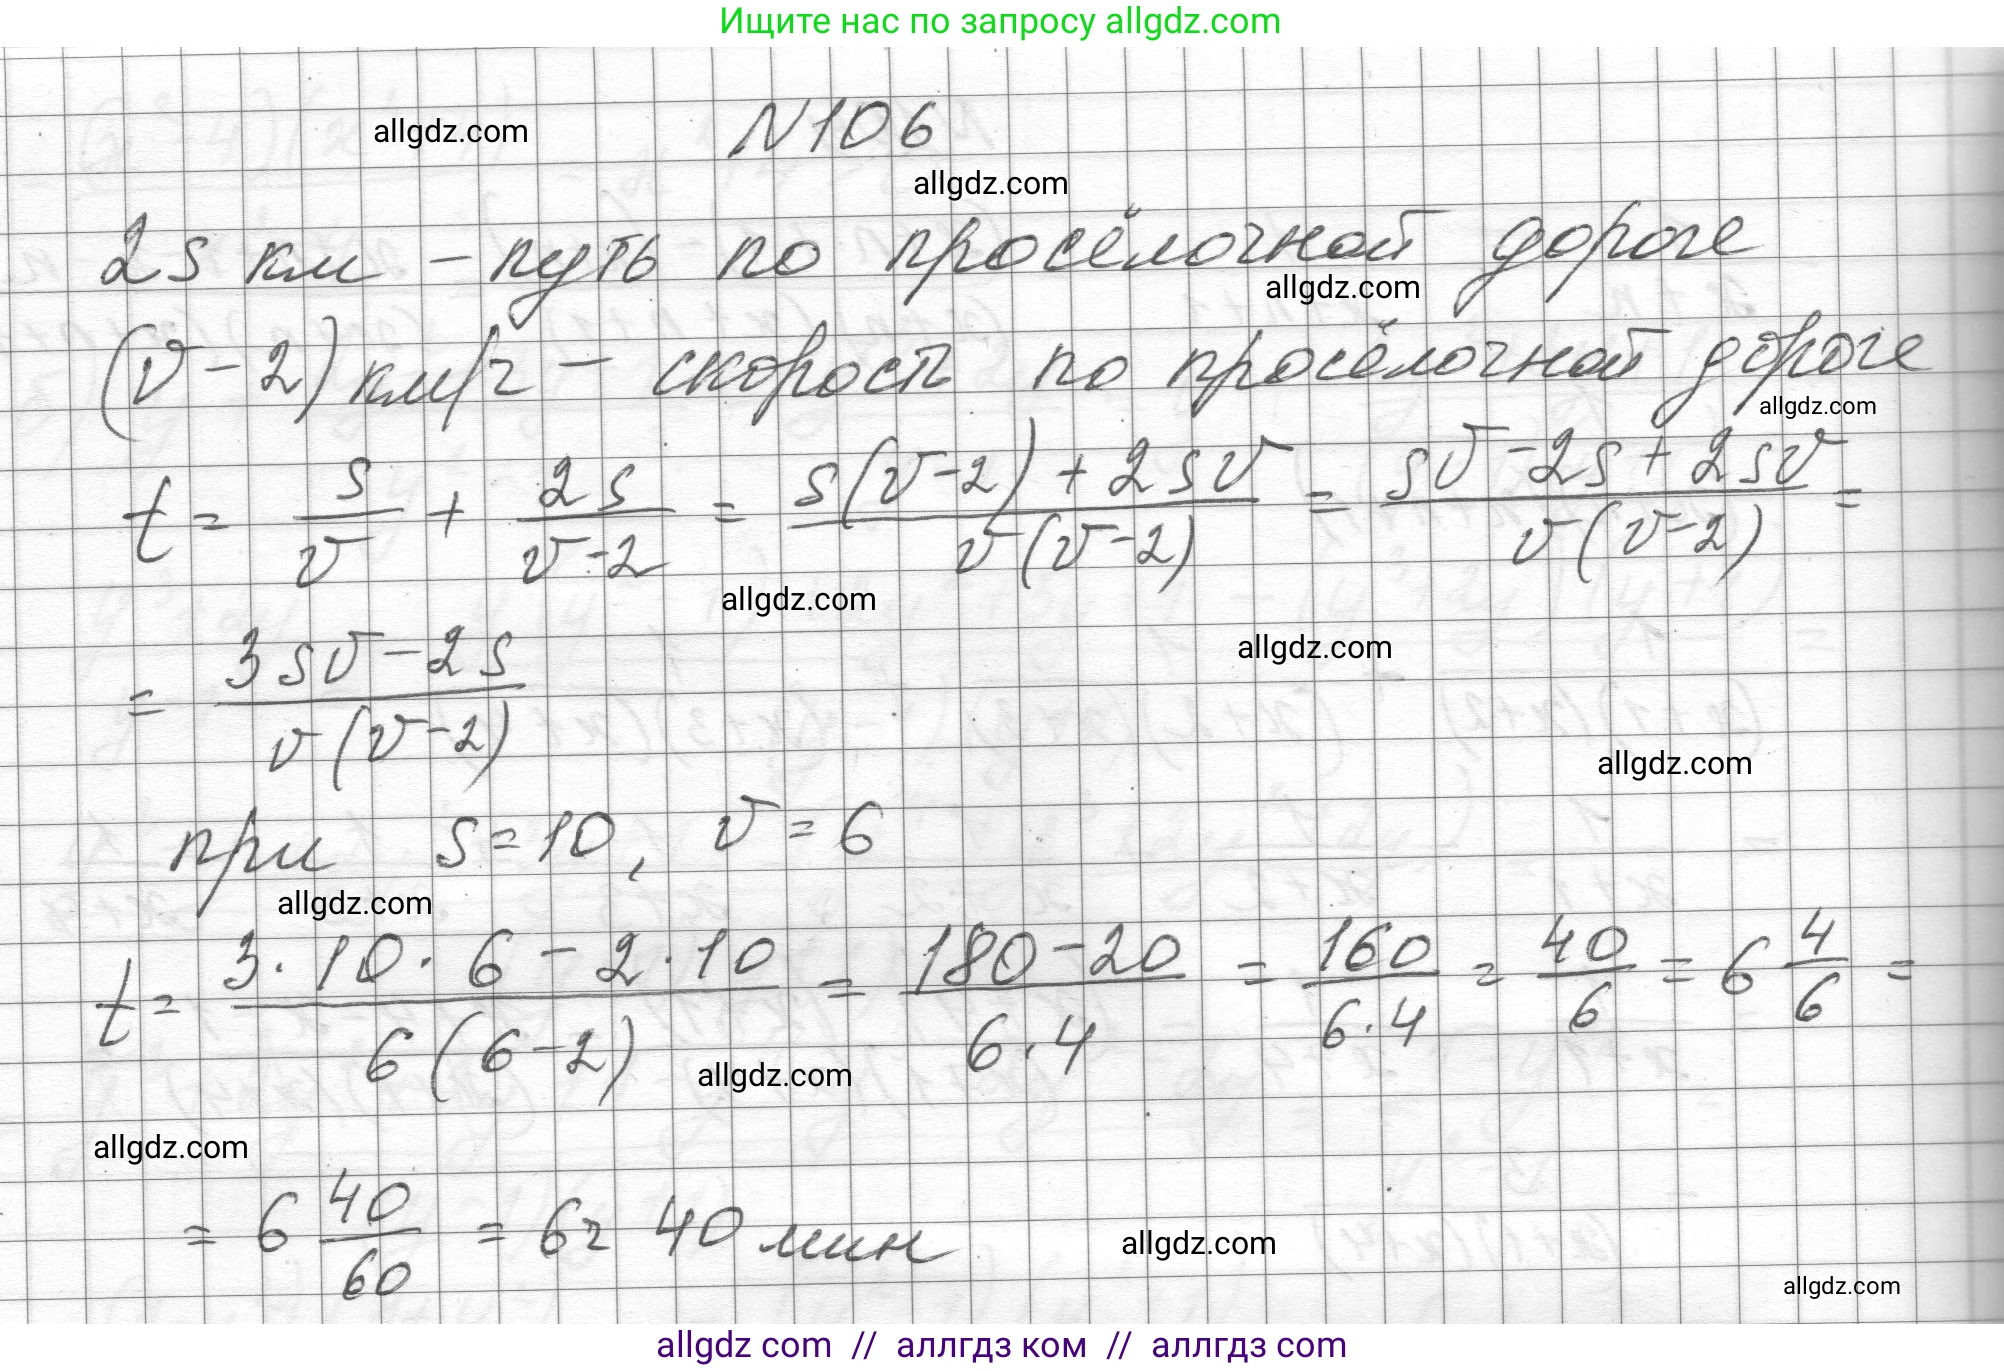 Ищите нас по запросу allgdz.com
allgdz.com N106
allgdz.com
2s км – путь по просёлочной дороге
allgdz.com
(v-2) км/ч – скорость по просёлочной дороге
allgdz.com
t = s/v + 2s/(v-2) = (s(v-2)+2sv)/(v(v-2)) = (sv-2s+2sv)/(v(v-2)) =
allgdz.com
allgdz.com
= (3sv-2s)/(v(v-2))
allgdz.com
при s=10, v=6
allgdz.com
t = (3·10·6-2·10)/(6(6-2)) = (180-20)/(6·4) = 160/(6·4) = 40/6 = 6 4/6 =
allgdz.com
allgdz.com
= 6 40/60 = 6ч 40 мин
allgdz.com
allgdz.com
allgdz com // аллгдз ком // аллгдз com